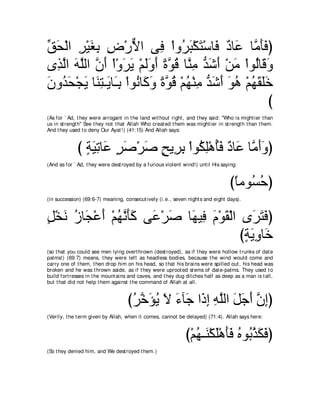 (فَأَمَّا عَادٌ فَاسْتَكْبَرُواْ فِى الاٌّرْضِ بِغَيْرِ الْحَقِّ
وَقَالُواْ مَنْ أَشَدُّ مِنَّا قُوَّةً أَوَلَمْ يَرَوْاْ أَنَّ اللَّهَ الَّذِى
خَلَقَهُمْ هُوَ أَشَدُّ مِنْهُمْ قُوَّةً وَكَانُواْ بِـَايَـتِنَا يَجْحَدُونَ
)
(As for `Ad, they were arrogant in the land without right, and they said: "Who is mightier than
us in strength'' See they not that Allah Who created them was mightier in strength than them.
And they used to deny Our Ayat!) (41:15) And Allah says:
(وَأَمَّا عَادٌ فَأُهْلِكُواْ بِرِيحٍ صَرْصَرٍ عَاتِيَةٍ )
(And as for `Ad, they were destroyed by a furious violent wind!) until His saying:
(حُسُوماً)
(in succession) (69:6-7) meaning, consecutively (i.e., seven nights and eight days).
(فَتَرَى الْقَوْمَ فِيهَا صَرْعَى كَأَنَّهُمْ أَعْجَازُ نَخْلٍ
خَاوِيَةٍ)
(so that you could see men lying overthrown (destroyed), as if they were hollow trunks of date
palms!) (69:7) means, they were left as headless bodies, because the wind would come and
carry one of them, then drop him on his head, so that his brains were spilled out, his head was
broken and he was thrown aside, as if they were uprooted stems of date-palms. They used to
build fortresses in the mountains and caves, and they dug ditches half as deep as a man is tall,
but that did not help them against the command of Allah at all.
(إِنَّ أَجَلَ اللَّهِ إِذَا جَآءَ لاَ يُؤَخَّرُ)
(Verily, the term given by Allah, when it comes, cannot be delayed) (71:4). Allah says here:
(فَكَذَّبُوهُ فَأَهْلَكْنَـهُمْ)
(So they denied him, and We destroyed them.)